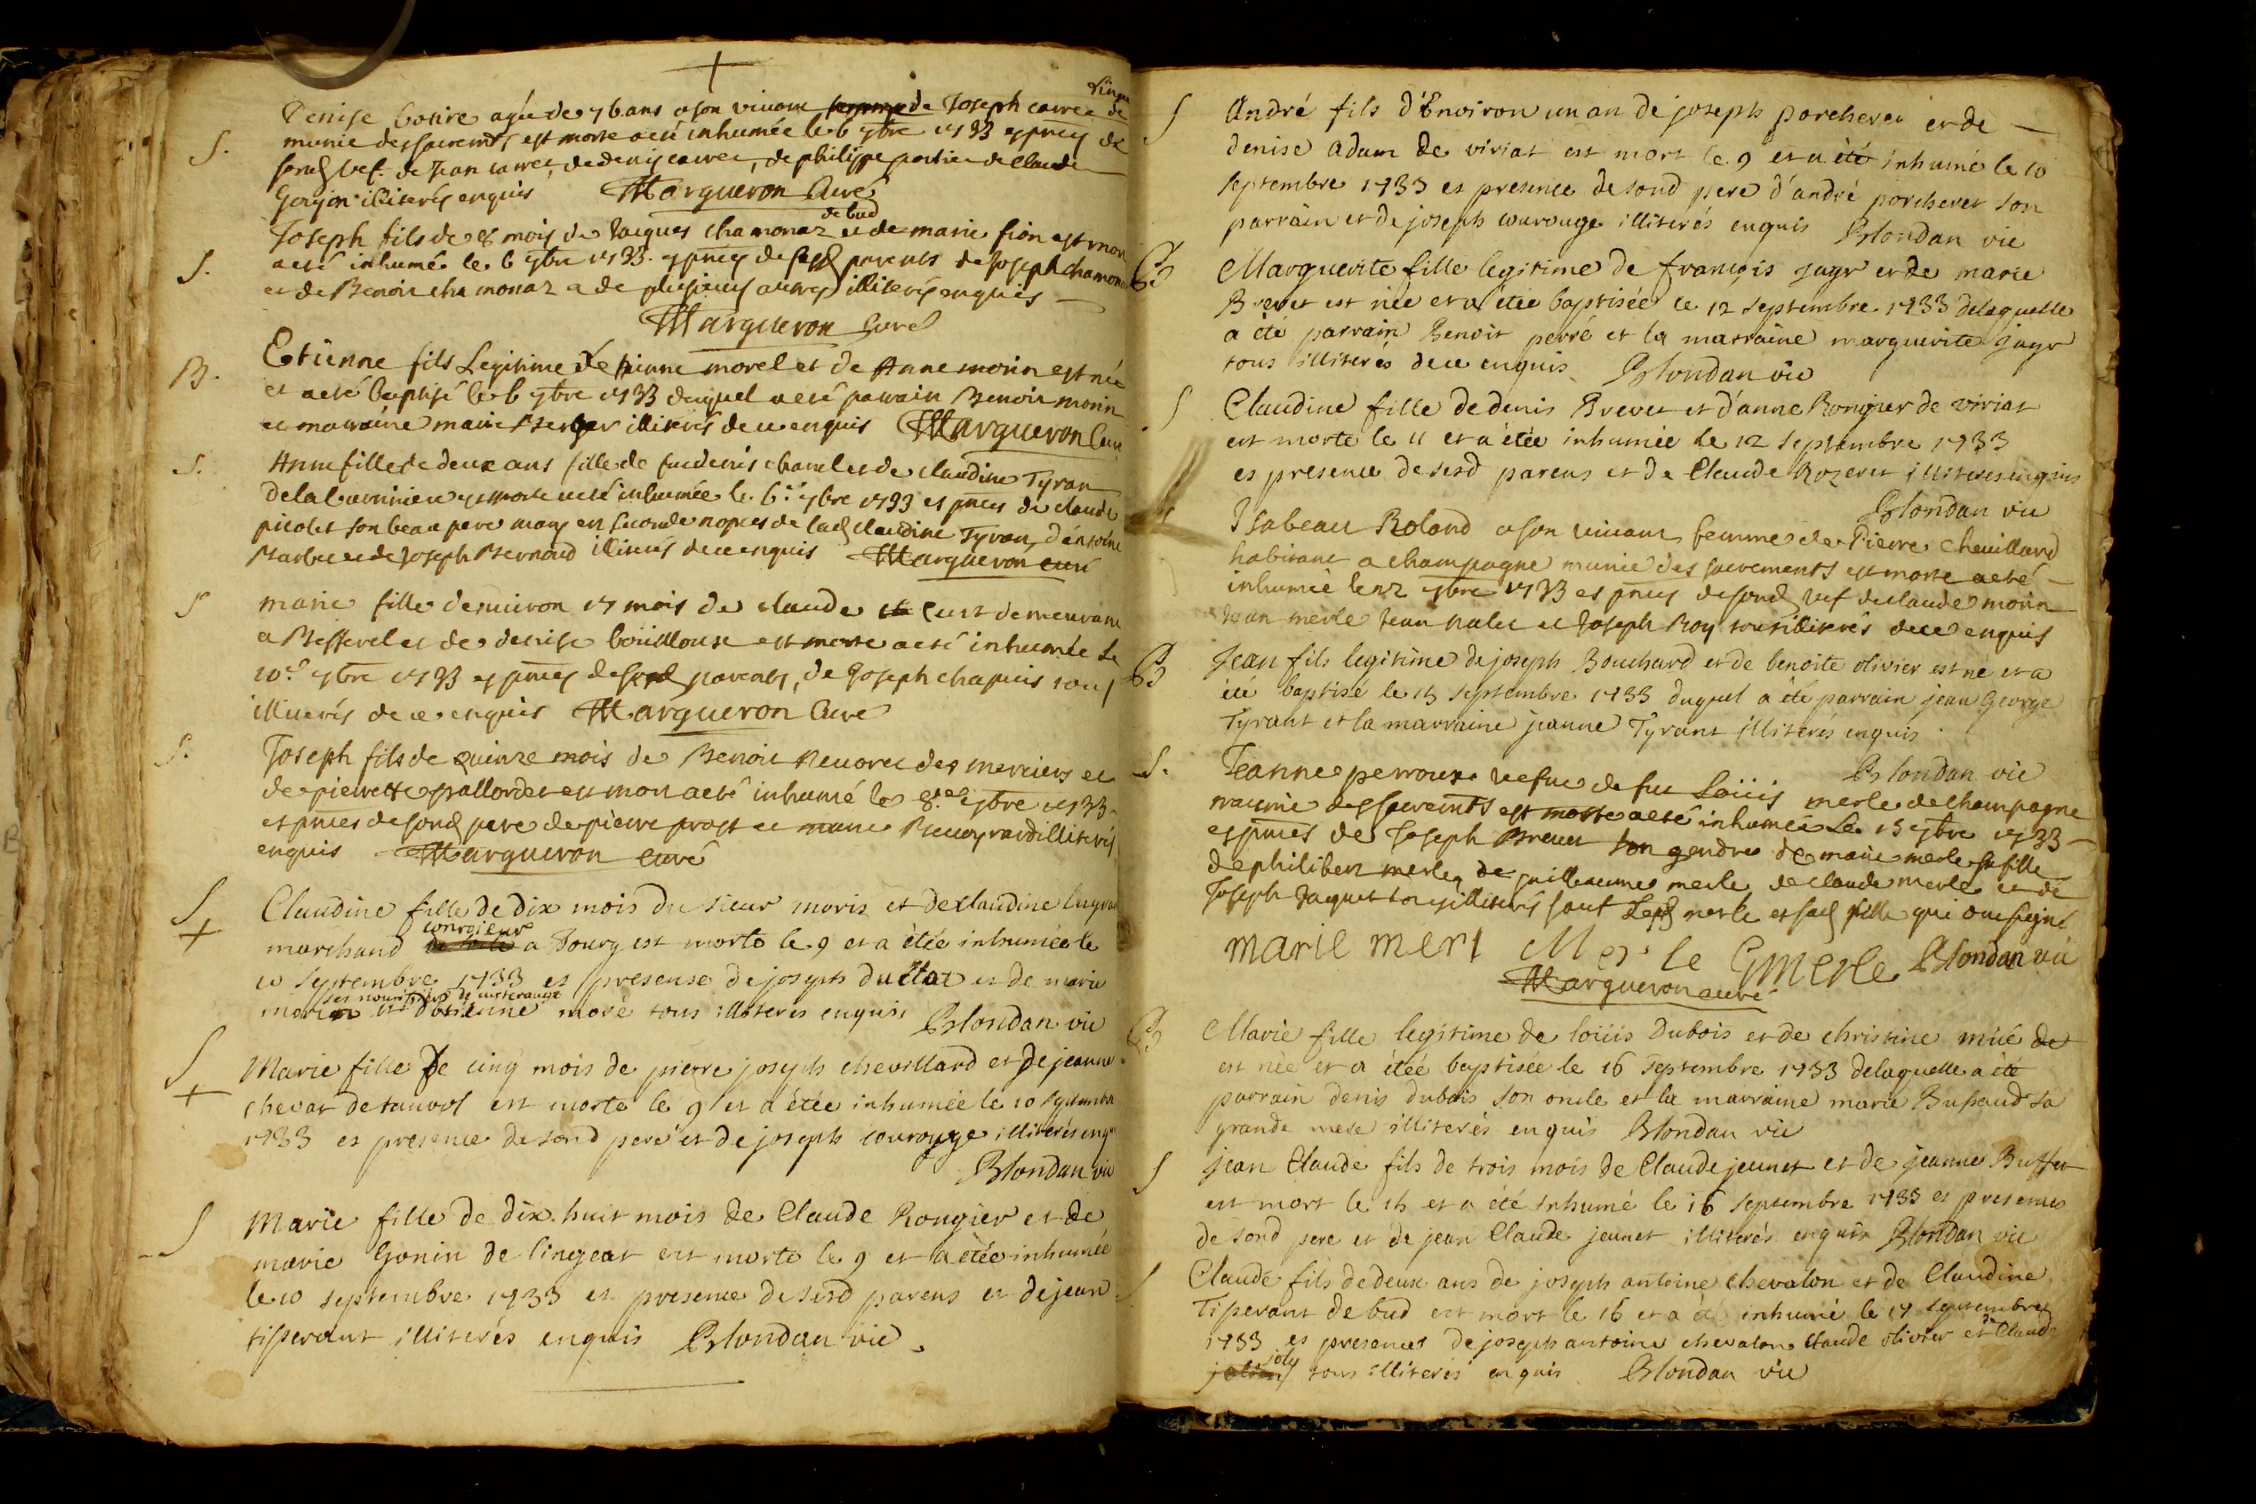 +
Denise Carree agée de 76 ans a son vivant de Joseph carree de
munie des sacremts est morte a eté inhumée le 6 7bre 1733 es pnces de
Jean carree, de denis carree, de philippe de claude
Gonjon illiterés enquis Margueron Curé
S.
de bud
Joseph fils de 8 mois de Jacques chamonaz et de marie fion est mort
a eté inhumé le 6 7bre 1733. es pnces de sesd parents de Joseph chamonaz
et de Benoit chamonaz et de plusieurs autres illiterés enquis
Margueron Curé
S.
Etienne fils Legitime de pierre morel et de Anne morin est né
et a eté baptisé le 6 7bre 1733 duquel a eté parrain Benoit morin
et marraine marie illiterés de ce enquis Margueron Curé
B.
Anne fille de deux ans fille de feu denis chanel et de claudine Tyran
de la est morte a eté inhumée le 6e 7bre 1733 es pnces de claude
picolet son beau pere mary en seconde nopces de lad claudine Tyran, d'antoine
Barbe et de Joseph Bernard illiterés de ce enquis Margueron curé
S.
marie fille d'environ 17 mois de claude cust demeurant
a Befferel et de denise bouilloux est morte a eté inhumée le
10e 7bre 1733 es pnces de sesd parents, de Joseph chapuis tous
illiterés de ce enquis Margueron Curé
S
Joseph fils de quinze mois de Benoit Neuoret des merciers et
de pierrette pallordet est mort a eté inhumé le 8e 7bre 1733
es pnces de sond pere de pierre prost et illiterés
enquis Margueron curé
S.
Claudine fille de dix mois du sieur moris et de claudine
marchand a Bourg est morte le 9 et a étée inhumée le
10 septembre 1733 es presense de joseph duclat et de marie
ses nourriciers de
et d'etienne moré tous illiterés enquis Blondan vic
S +
Marie fille de cinq mois de pierre joseph chevillard et de jeanne
chevat de tanvol est morte le 9 et a étée inhumée le 10 septembre
1733 es presence de sond pere et de joseph courouge illiterés enquis
Blondan vic
S +
Marie fille de dix huit mois de Claude Rongier et de
marie Gonin de lingeat est morte le 9 et a étée inhumée
le 10 septembre 1733 es presence de sesd parens et de jean
tisserant illiterés enquis Blondan vic
S
André fils d'Environ un an de joseph porcheret et de
denise adam de viriat est mort le 9 et a été inhumé le 10
septembre 1733 es presence de sond pere d'andré porcheret son
parrain et de joseph courouge illiterés enquis Blondan vic
S
Marguerite fille legitime de françois jayr et de marie
Brevet est née et a étée baptisée le 12 septembre 1733 de laquelle
a été parrain Benoit perré et la marraine marguerite jayr
tous illiterés de ce enquis Blondan vic
B
Claudine fille de denis Brevet et d'anne Rongier de viriat
est morte le 11 et a étée inhumée le 12 septembre 1733
es presence de sesd parens et de Claude Rozeret illiteres enquis
Blondan vic
S
Isabeau Roland a son vivant femme de Pierre Chevillard
habitant a champagne munie des sacrements est morte a eté
inhumée le 12 7bre 1733 es pnces de sond vef de claude morin
Jean merle Jean nalet et Joseph Roy tous illiterés de ce enquis
Jean fils legitime de joseph Bouchard et de benoite olivier est né et a
été baptisé le 13 septembre 1733 duquel a été parrain jean George
Tyrant et la marraine jeanne Tyrant illiterés enquis.
Blondan vic
B
Jeanne perroux vefue de feu Loüis merle de champagne
munie des sacremts est morte a eté inhumée le 15 7bre 1733
es pnces de Joseph Breuet son gendre de marie merle sa fille
de philibert merle, de guilleaume merle de claude merle et de
Joseph Jaquet tous illiterés sauf Led merle et sad fille qui ont signé
S.
marie merl Merle Gmerle Blondan vic
Margueron curé
Marie fille legitime de loüis Dubois et de christine mué
est née et a étée baptisée le 16 septembre 1733 de laquelle a été
parrain denis dubois son oncle et la marraine marie Bussaud sa
grande mere illiterés enquis Blondan vic
B
jean Claude fils de trois mois de Claude jeunet et de jeanne Buffet
est mort le 15 et a été inhumé le 16 septembre 1733 es presences
de sond pere et de jean Claude jeunet illiterés enquis Blondan vic
S
Claude fils de deux ans de joseph antoine chevalon et de Claudine
Tisserant de bud est mort le 16 et a été inhumé le 17 septembre
1733 es presences de joseph antoine chevalon claude olivier et de Claude
joly tous illiterés enquis Blondan vic
S